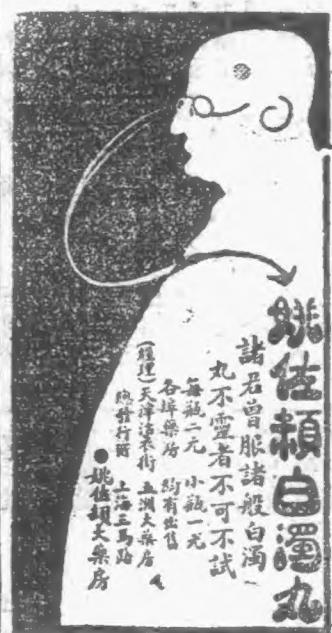 姚佐頓白濁丸
諸君曾服諸般白濁
丸不靈者不可不試
每瓶二元 小瓶一元
各埠藥房 均有出售
(經理)天津估衣街 五洲大藥房
總發行所 上海三馬路
●姚佐頓大藥房